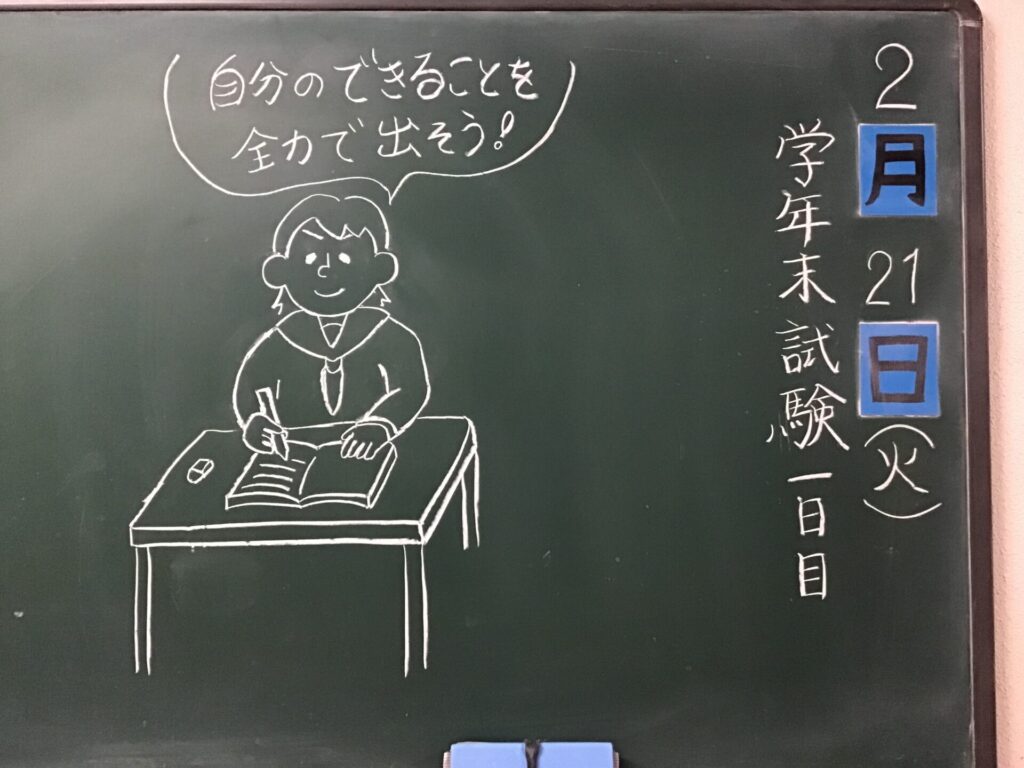 2月21日(火)
学年末試験一日目
自分のできることを
全力で出そう!